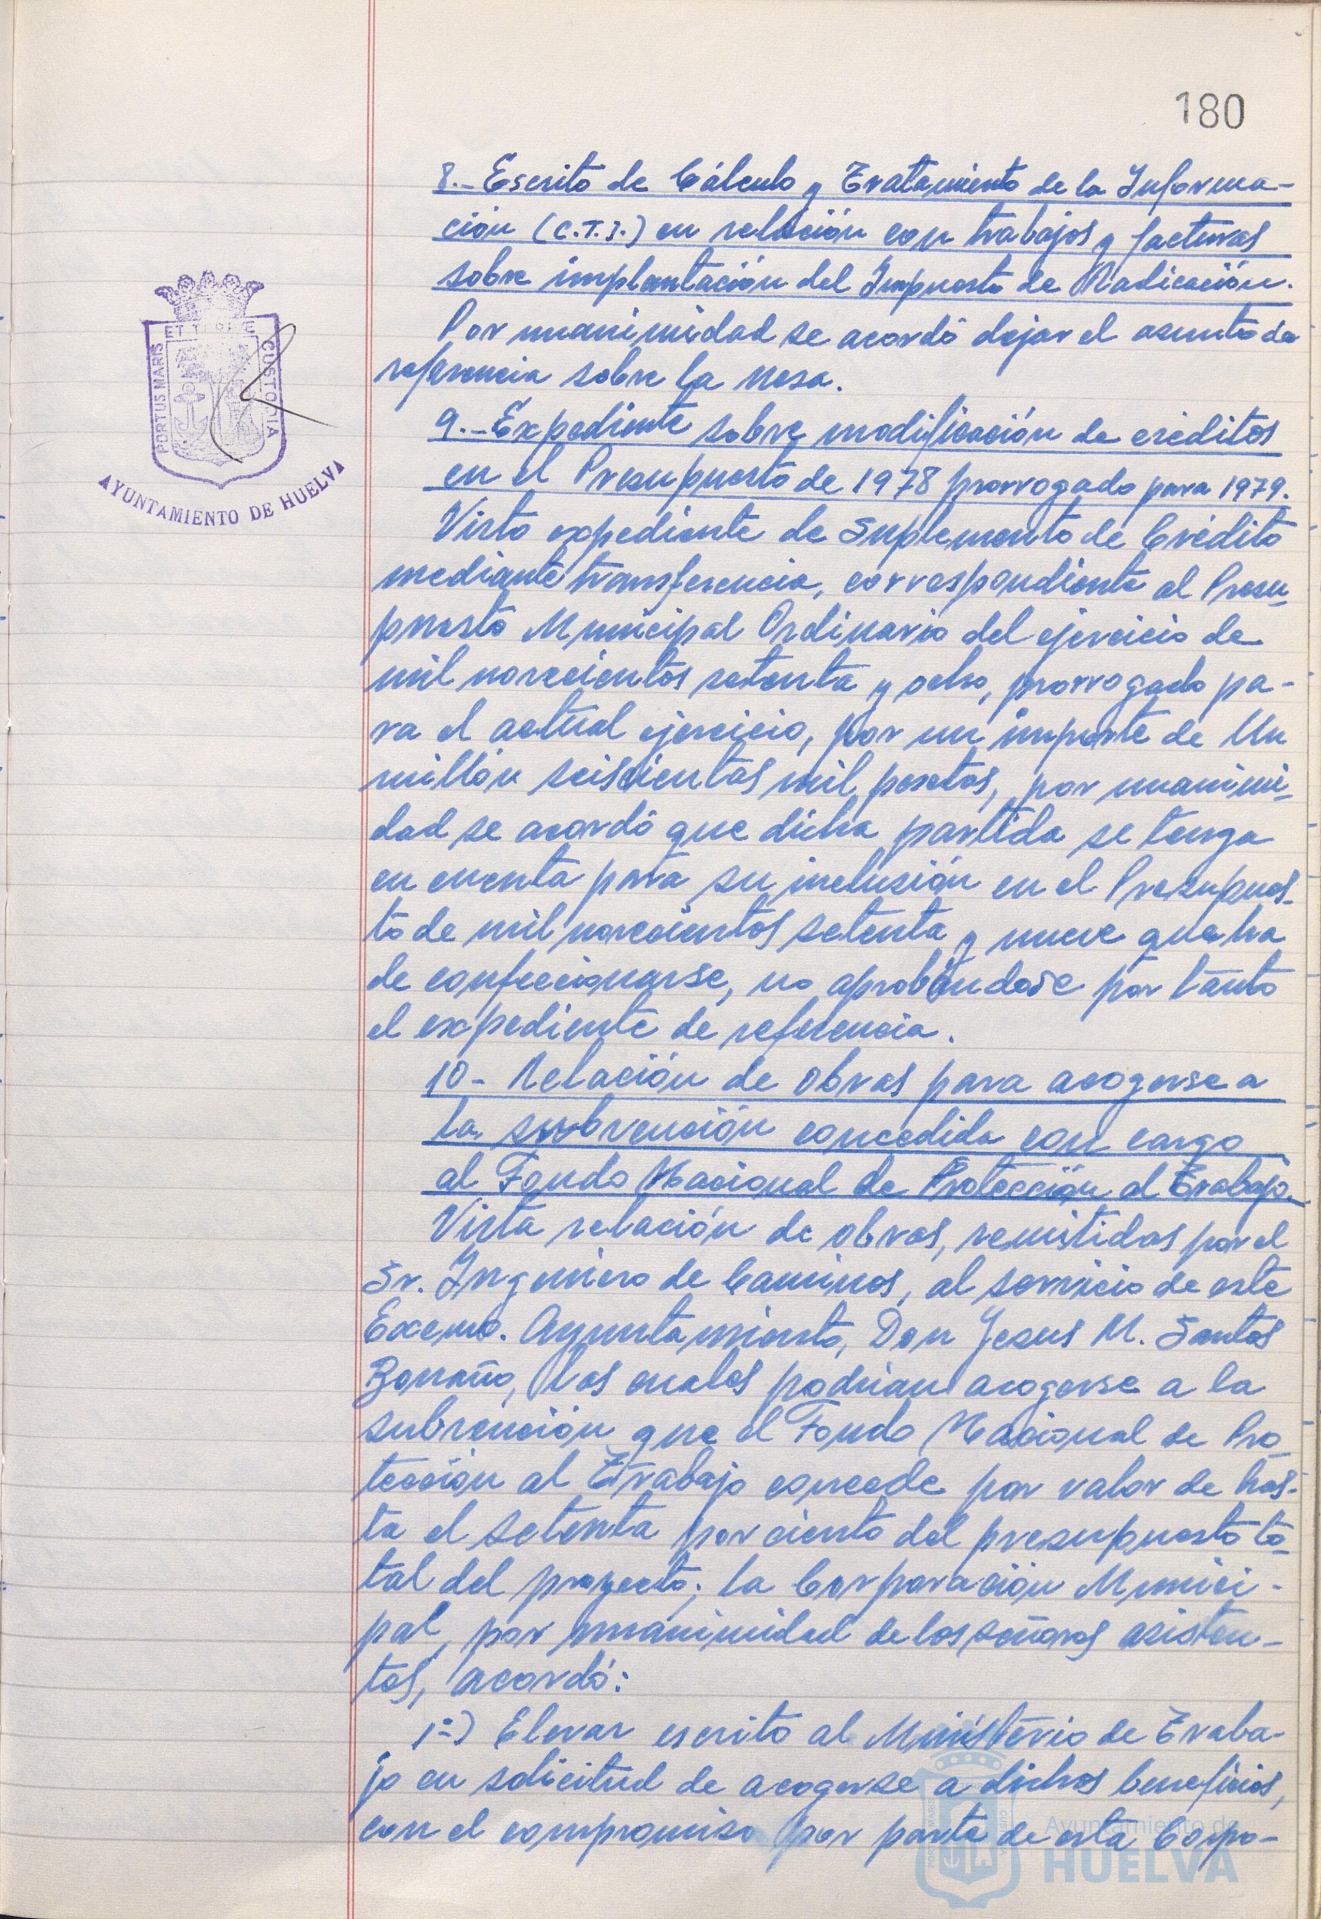 180
8.- Escrito de Cálculo y Tratamiento de la Informa-
ción (C.T.I.) en relación con trabajos y facturas
sobre implantación del Impuesto de Radicación.
Por unanimidad se acordó dejar el asunto de
referencia sobre la mesa.
9.- Expediente sobre modificación de créditos
en el Presupuesto de 1978 prorrogado para 1979.
Visto expediente de Suplemento de Crédito
mediante transferencia, correspondiente al Presu-
puesto Municipal Ordinario del ejercicio de
mil novecientos setenta y ocho, prorrogado pa-
ra el actual ejercicio, por un importe de Un
millón seiscientas mil pesetas, por unanimi-
dad se acordó que dicha partida se tenga
en cuenta para su inclusión en el Presupues-
to de mil novecientos setenta y nueve que ha
de confeccionarse, no aprobándose por tanto
el expediente de referencia.
10- Relación de obras para acogerse a
la subvención concedida con cargo
al Fondo Nacional de Protección al Trabajo.
Vista relación de obras, remitidas por el
Sr. Ingeniero de Caminos, al servicio de este
Excmo. Ayuntamiento, Don Jesus M. Santos
, las cuales podrian acogerse a la
subvención que el Fondo Nacional de Pro-
tección al Trabajo concede por valor de has-
ta el setenta por ciento del presupuesto to-
tal del proyecto; la Corporación Munici-
pal, por unanimidad de los señores asisten-
tes, acordó:
1º) Elevar escrito al Ministerio de Traba-
jo en solicitud de acogerse a dichos beneficios,
con el compromiso por parte de esta Corpo-
PORTUS MARIS
ET TERRE
CUSTODIA
AYUNTAMIENTO DE HUELVA
Ayuntamiento de
HUELVA